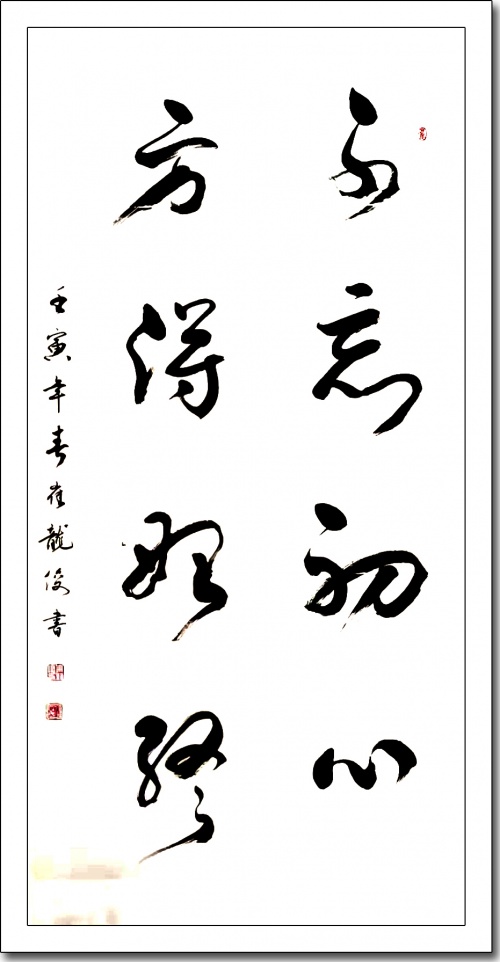 不忘初心
方得始终
壬寅年春崔龍俊书